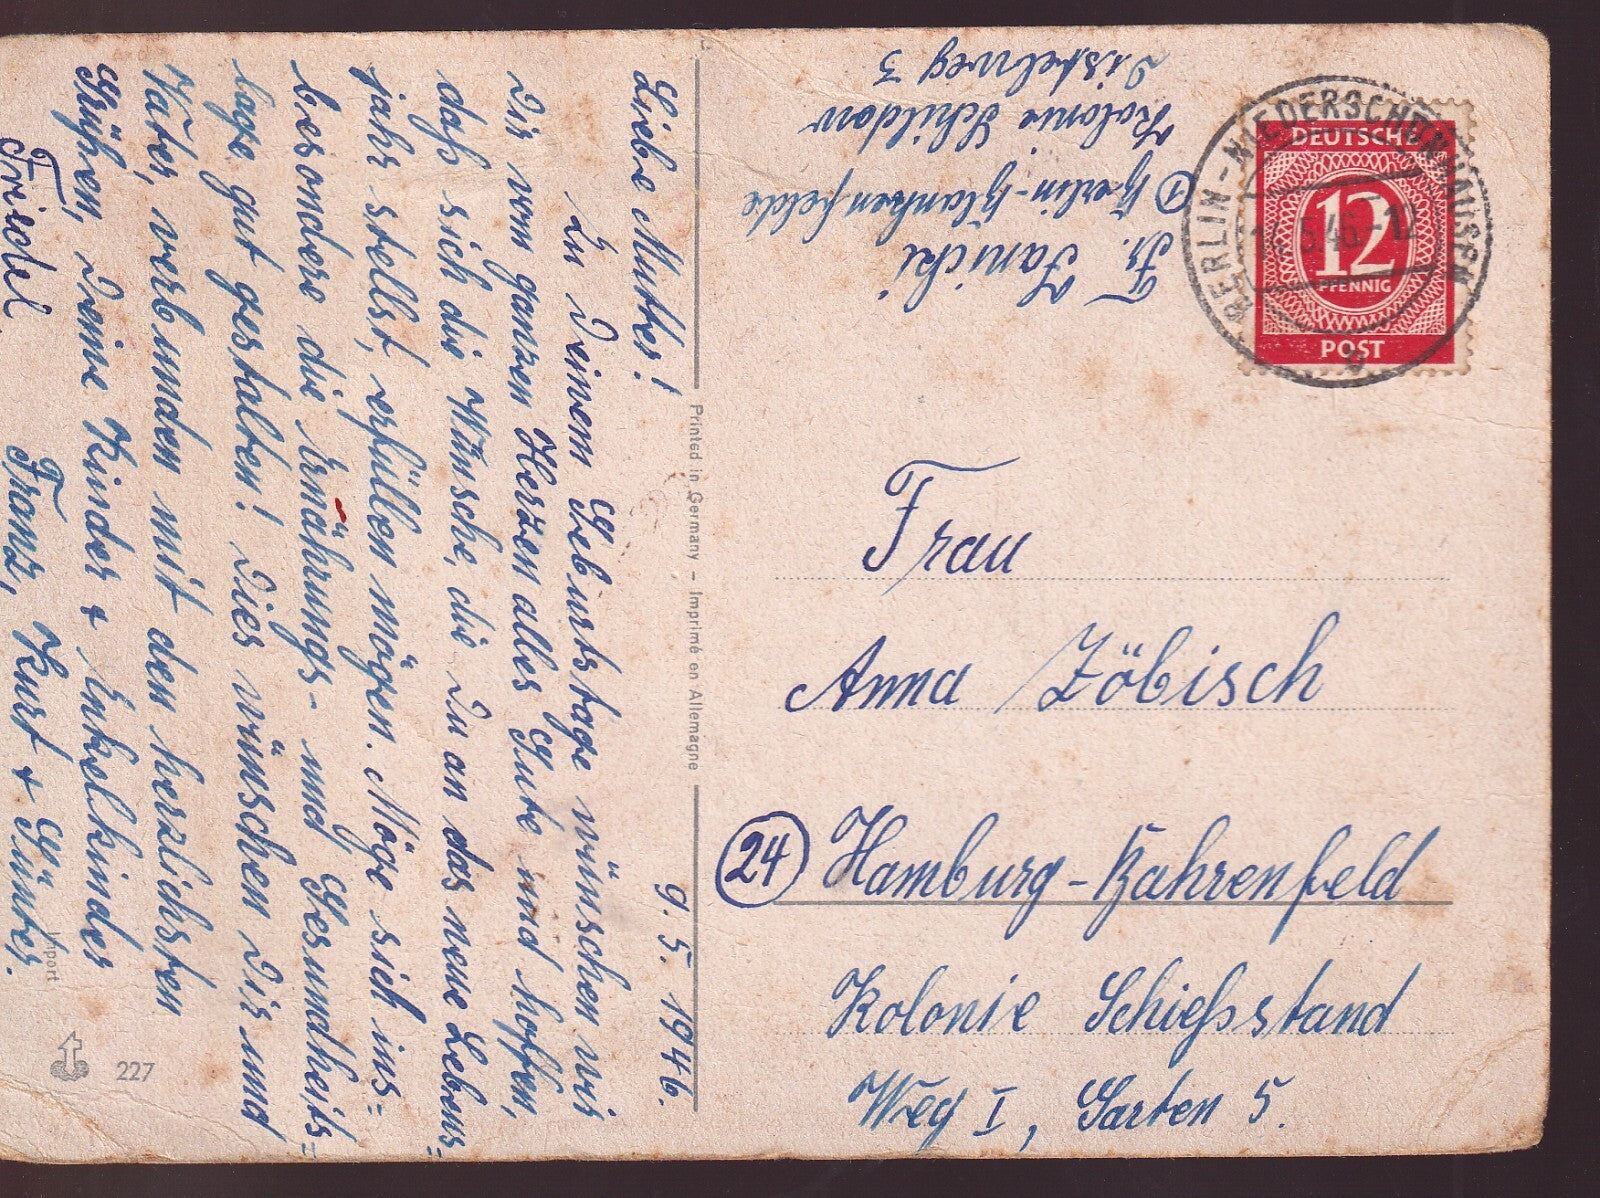 9. 5. 1946.
Liebe Mutter!
Zu Deinem Geburtstage wünschen wir
Dir von ganzen Herzen alles Gute und hoffen,
daß sich die Wünsche, die Du an das neue Lebens=
jahr stellst, erfüllen mögen. Möge sich ins=
besondere die Ernährungs- und Gesundheits=
lage gut gestalten! Dies wünschen Dir und
Vater, verbunden mit den herzlichsten
Grüßen, Deine Kinder + Enkelkinder
Friedel, Franz, Kurt + Günter.
Printed in Germany – Imprimé en Allemagne
227
Fr. Janicki
① Berlin-Blankenfelde
Kolonie Schildow
Distelweg 3
DEUTSCHE
12
PFENNIG
POST
BERLIN-NIEDERSCHÖNHAUSEN
5.46.-12
Frau
Anna Zöbisch
24 Hamburg-Bahrenfeld
Kolonie Schießstand
Weg I, Garten 5.